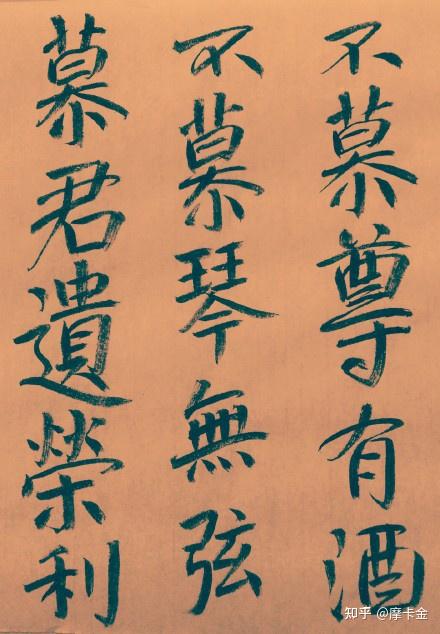 不慕尊有酒
不慕琴無弦
慕君遺榮利
知乎 @摩卡金